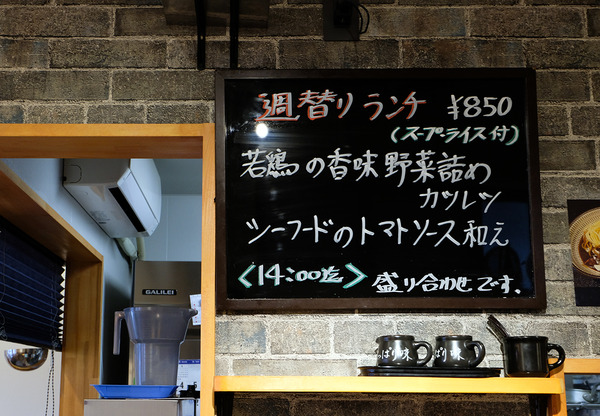 週替り ランチ ¥850
(スープ・ライス付)
若鶏の香味野菜詰め
カツレツ
シーフードのトマトソース和え
<14:00迄> 盛り合わせです。
GALILEI
っぱり味
ぱり味